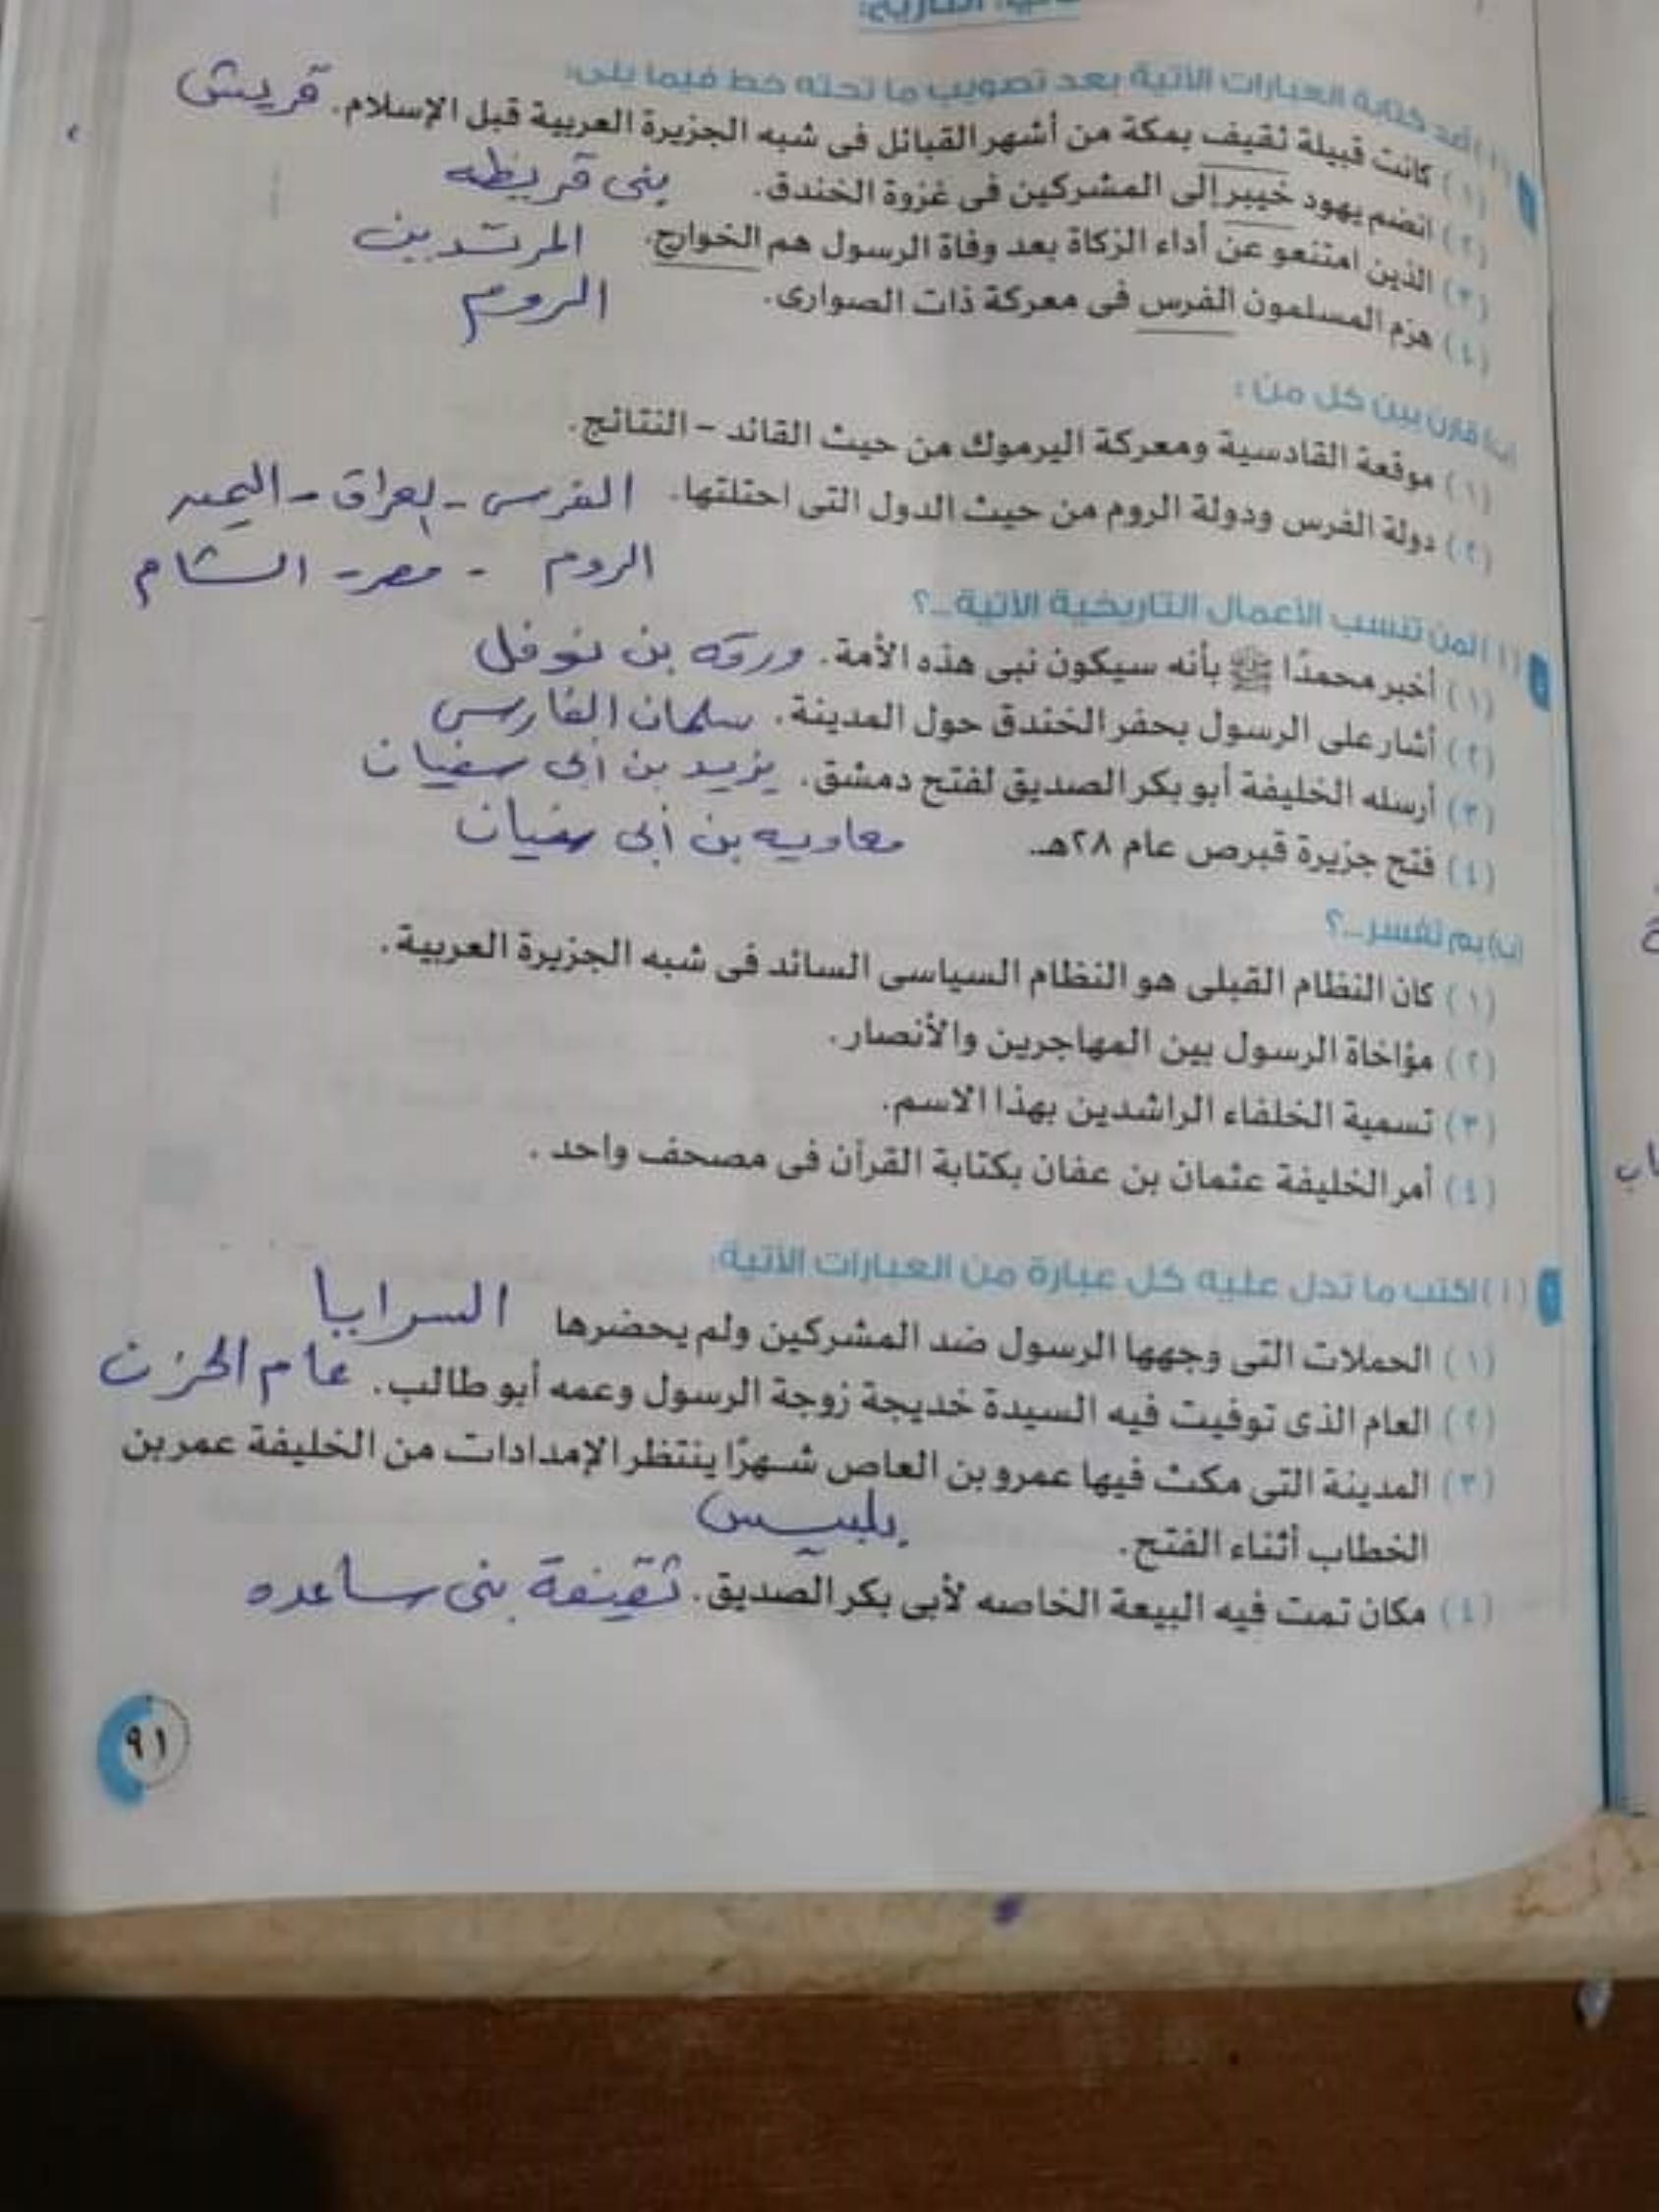 ثانيًا: التاريخ:
(أ) أعد كتابة العبارات الآتية بعد تصويب ما تحته خط فيما يلى:
(١) كانت قبيلة ثقيف بمكة من أشهر القبائل فى شبه الجزيرة العربية قبل الإسلام. قريش
(٢) انضم يهود خيبر إلى المشركين فى غزوة الخندق. بنى قريظه
(٣) الذين امتنعو عن أداء الزكاة بعد وفاة الرسول هم الخوارج. المرتدين
(٤) هزم المسلمون الفرس فى معركة ذات الصوارى. الروم
(ب) قارن بين كل من:
(١) موقعة القادسية ومعركة اليرموك من حيث القائد - النتائج.
(٢) دولة الفرس ودولة الروم من حيث الدول التى احتلتها. الفرس - العراق - اليمن
الروم - مصر - الشام
(أ) لمن تنسب الأعمال التاريخية الآتية...؟
(١) أخبر محمدًا ﷺ بأنه سيكون نبى هذه الأمة. ورقه بن نوفل
(٢) أشار على الرسول بحفر الخندق حول المدينة. سلمان الفارسى
(٣) أرسله الخليفة أبو بكر الصديق لفتح دمشق. يزيد بن أبى سفيان
(٤) فتح جزيرة قبرص عام ٢٨هـ. معاويه بن أبى سفيان
(ب) بم تفسر...؟
(١) كان النظام القبلى هو النظام السياسى السائد فى شبه الجزيرة العربية.
(٢) مؤاخاة الرسول بين المهاجرين والأنصار.
(٣) تسمية الخلفاء الراشدين بهذا الاسم.
(٤) أمر الخليفة عثمان بن عفان بكتابة القرآن فى مصحف واحد.
(أ) اكتب ما تدل عليه كل عبارة من العبارات الآتية:
(١) الحملات التى وجهها الرسول ضد المشركين ولم يحضرها السرايا
(٢) العام الذى توفيت فيه السيدة خديجة زوجة الرسول وعمه أبو طالب. عام الحزن
(٣) المدينة التى مكث فيها عمرو بن العاص شهرًا ينتظر الإمدادات من الخليفة عمر بن
الخطاب أثناء الفتح. بلبيس
(٤) مكان تمت فيه البيعة الخاصه لأبى بكر الصديق. ثقيفة بنى ساعده
٩١